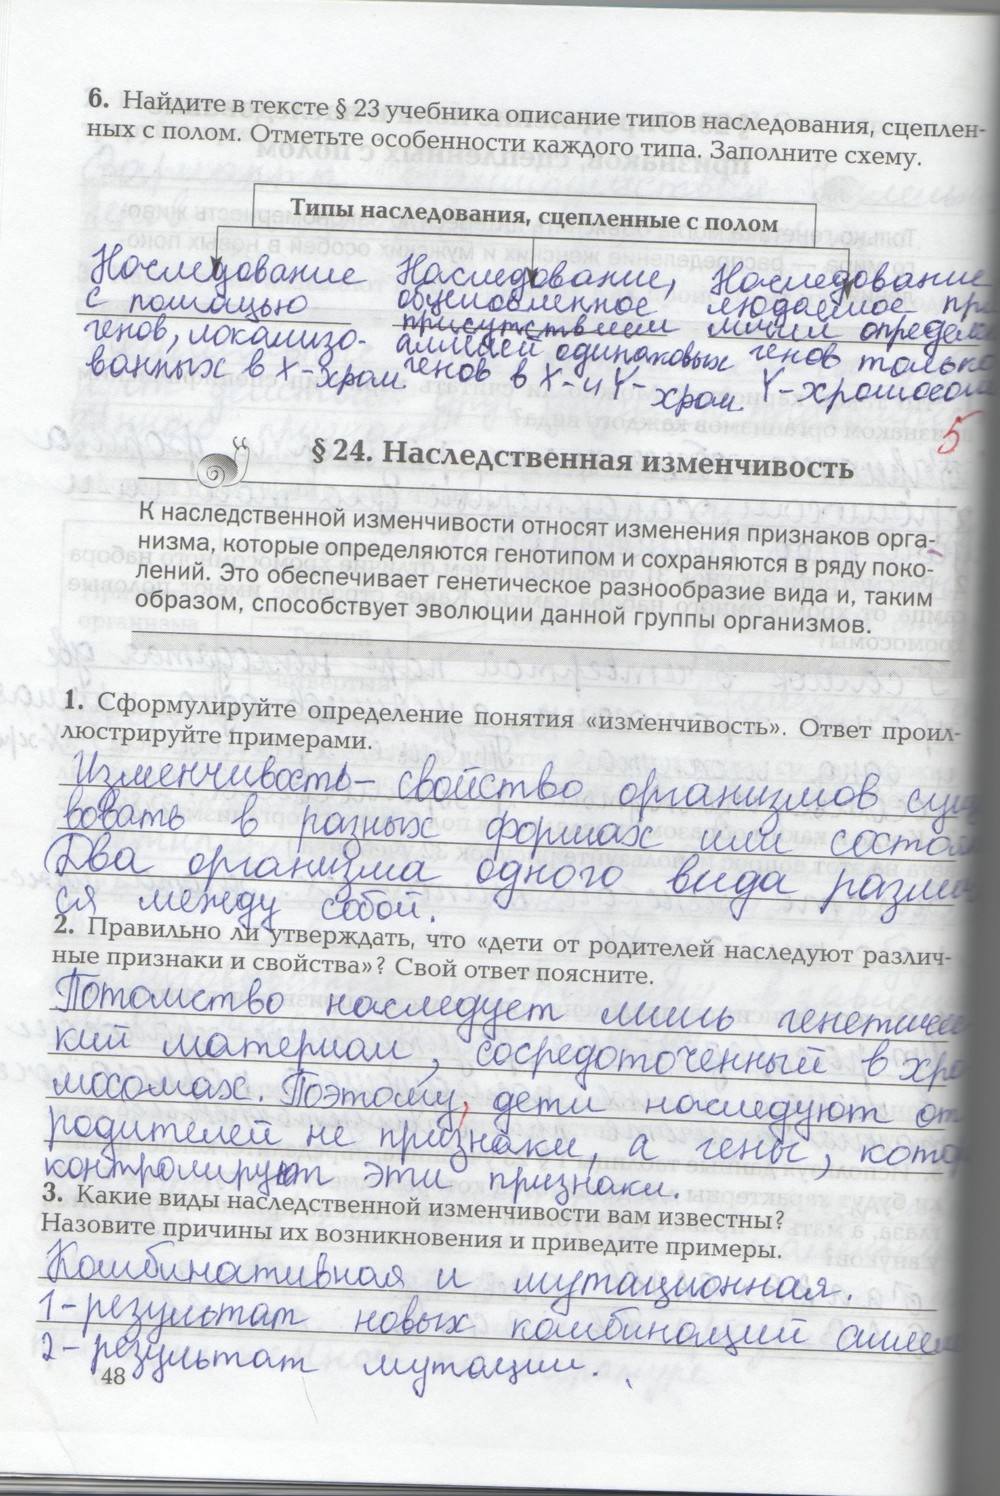 6. Найдите в тексте § 23 учебника описание типов наследования, сцеплен-
ных с полом. Отметьте особенности каждого типа. Заполните схему.
Типы наследования, сцепленные с полом
Наследование Наследование, Наследование
с помощью обусловленное людаемое при
генов, локализо- присутствием личии определ
ванных в X-хром. аллелей одинаковых генов только
генов в X- и Y- хром. Y-хромосома
5
§ 24. Наследственная изменчивость
К наследственной изменчивости относят изменения признаков орга-
низма, которые определяются генотипом и сохраняются в ряду поко-
лений. Это обеспечивает генетическое разнообразие вида и, таким
образом, способствует эволюции данной группы организмов.
1. Сформулируйте определение понятия «изменчивость». Ответ проил-
люстрируйте примерами.
Изменчивость – свойство организмов сущ
вовать в разных формах или состоя
(Два организма одного вида разли
ся между собой.
2. Правильно ли утверждать, что «дети от родителей наследуют различ-
ные признаки и свойства»? Свой ответ поясните.
Потомство наследует лишь генетичес
кий материал, сосредоточенный в хро
мосомах. Поэтому, дети наследуют от
родителей не признаки, а гены, кото
контролируют эти признаки.
3. Какие виды наследственной изменчивости вам известны?
Назовите причины их возникновения и приведите примеры.
Комбинативная и мутационная.
1 – результат новых комбинаций аллел
2 – результат мутации.
48